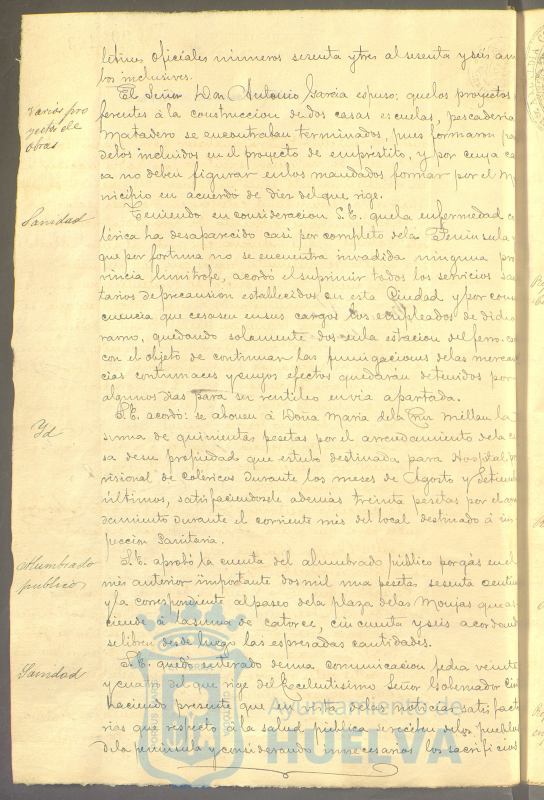 letines oficiales números sesenta y tres al sesenta y seis am
bos inclusives.
Varios pro
yectos de
obras
El Señor Don Antonio Garcia espuso: que los proyectos
ferentes á la construccion de dos casas escuelas, pescaderia
Matadero se encontraban terminados, pues formaron pa
de los incluidos en el proyecto de empréstito, y por cuya ca
sa no deben figurar en los mandados formar por el M
nicipio en acuerdo de diez del que rige.
Sanidad
Teniendo en consideracion S.E. que la enfermedad c
lérica ha desaparecido casi por completo de la Peninsula y
que por fortuna no se encuentra invadida ninguna pro
vincia limitrofe, acordó el suprimir todos los servicios sa
tarios de precausion establecidos en esta Ciudad y por con
cuencia que cesasen en sus cargos los empleados de dicho
ramo, quedando solamente dos en la estacion del ferro-ca
con el objeto de continuar las fumigaciones de las merca
cias contumaces y cuyos efectos quedarán detenidos por
algunos dias para su ventileo en via apartada.
Yd
S.E. acordó: se abonen á Doña Maria de la Cruz Millan la
suma de quinientas pesetas por el arrendamiento de la ca
sa de su propiedad que estubo destinada para Hospital pro
visional de coléricos durante los meses de Agosto y Setiem
últimos, satisfaciendosele además treinta pesetas por el arren
damiento durante el corriente mes del local destinado á ins
peccion Sanitaria.
Alumbrado
publico
S.E. aprobó la cuenta del alumbrado público por gás en el
mes anterior importante dos mil una peseta sesenta centim
y la correspondiente al paseo de la plaza de las Monjas que as
ciende á la suma de catorce, cincuenta y seis acordando
se libren desde luego las espresadas cantidades.
Sanidad
S.E. quedó enterado de una comunicacion fecha veinte
y cuatro del que rige del Excelentisimo Señor Gobernador Civil
haciendo presente que en vista de las noticias satisfacto
rias que respecto á la salud pública se reciben de los pueblos
de la peninsula y considerando innecesarios los sacrificios
Ayuntamiento de
HUELVA